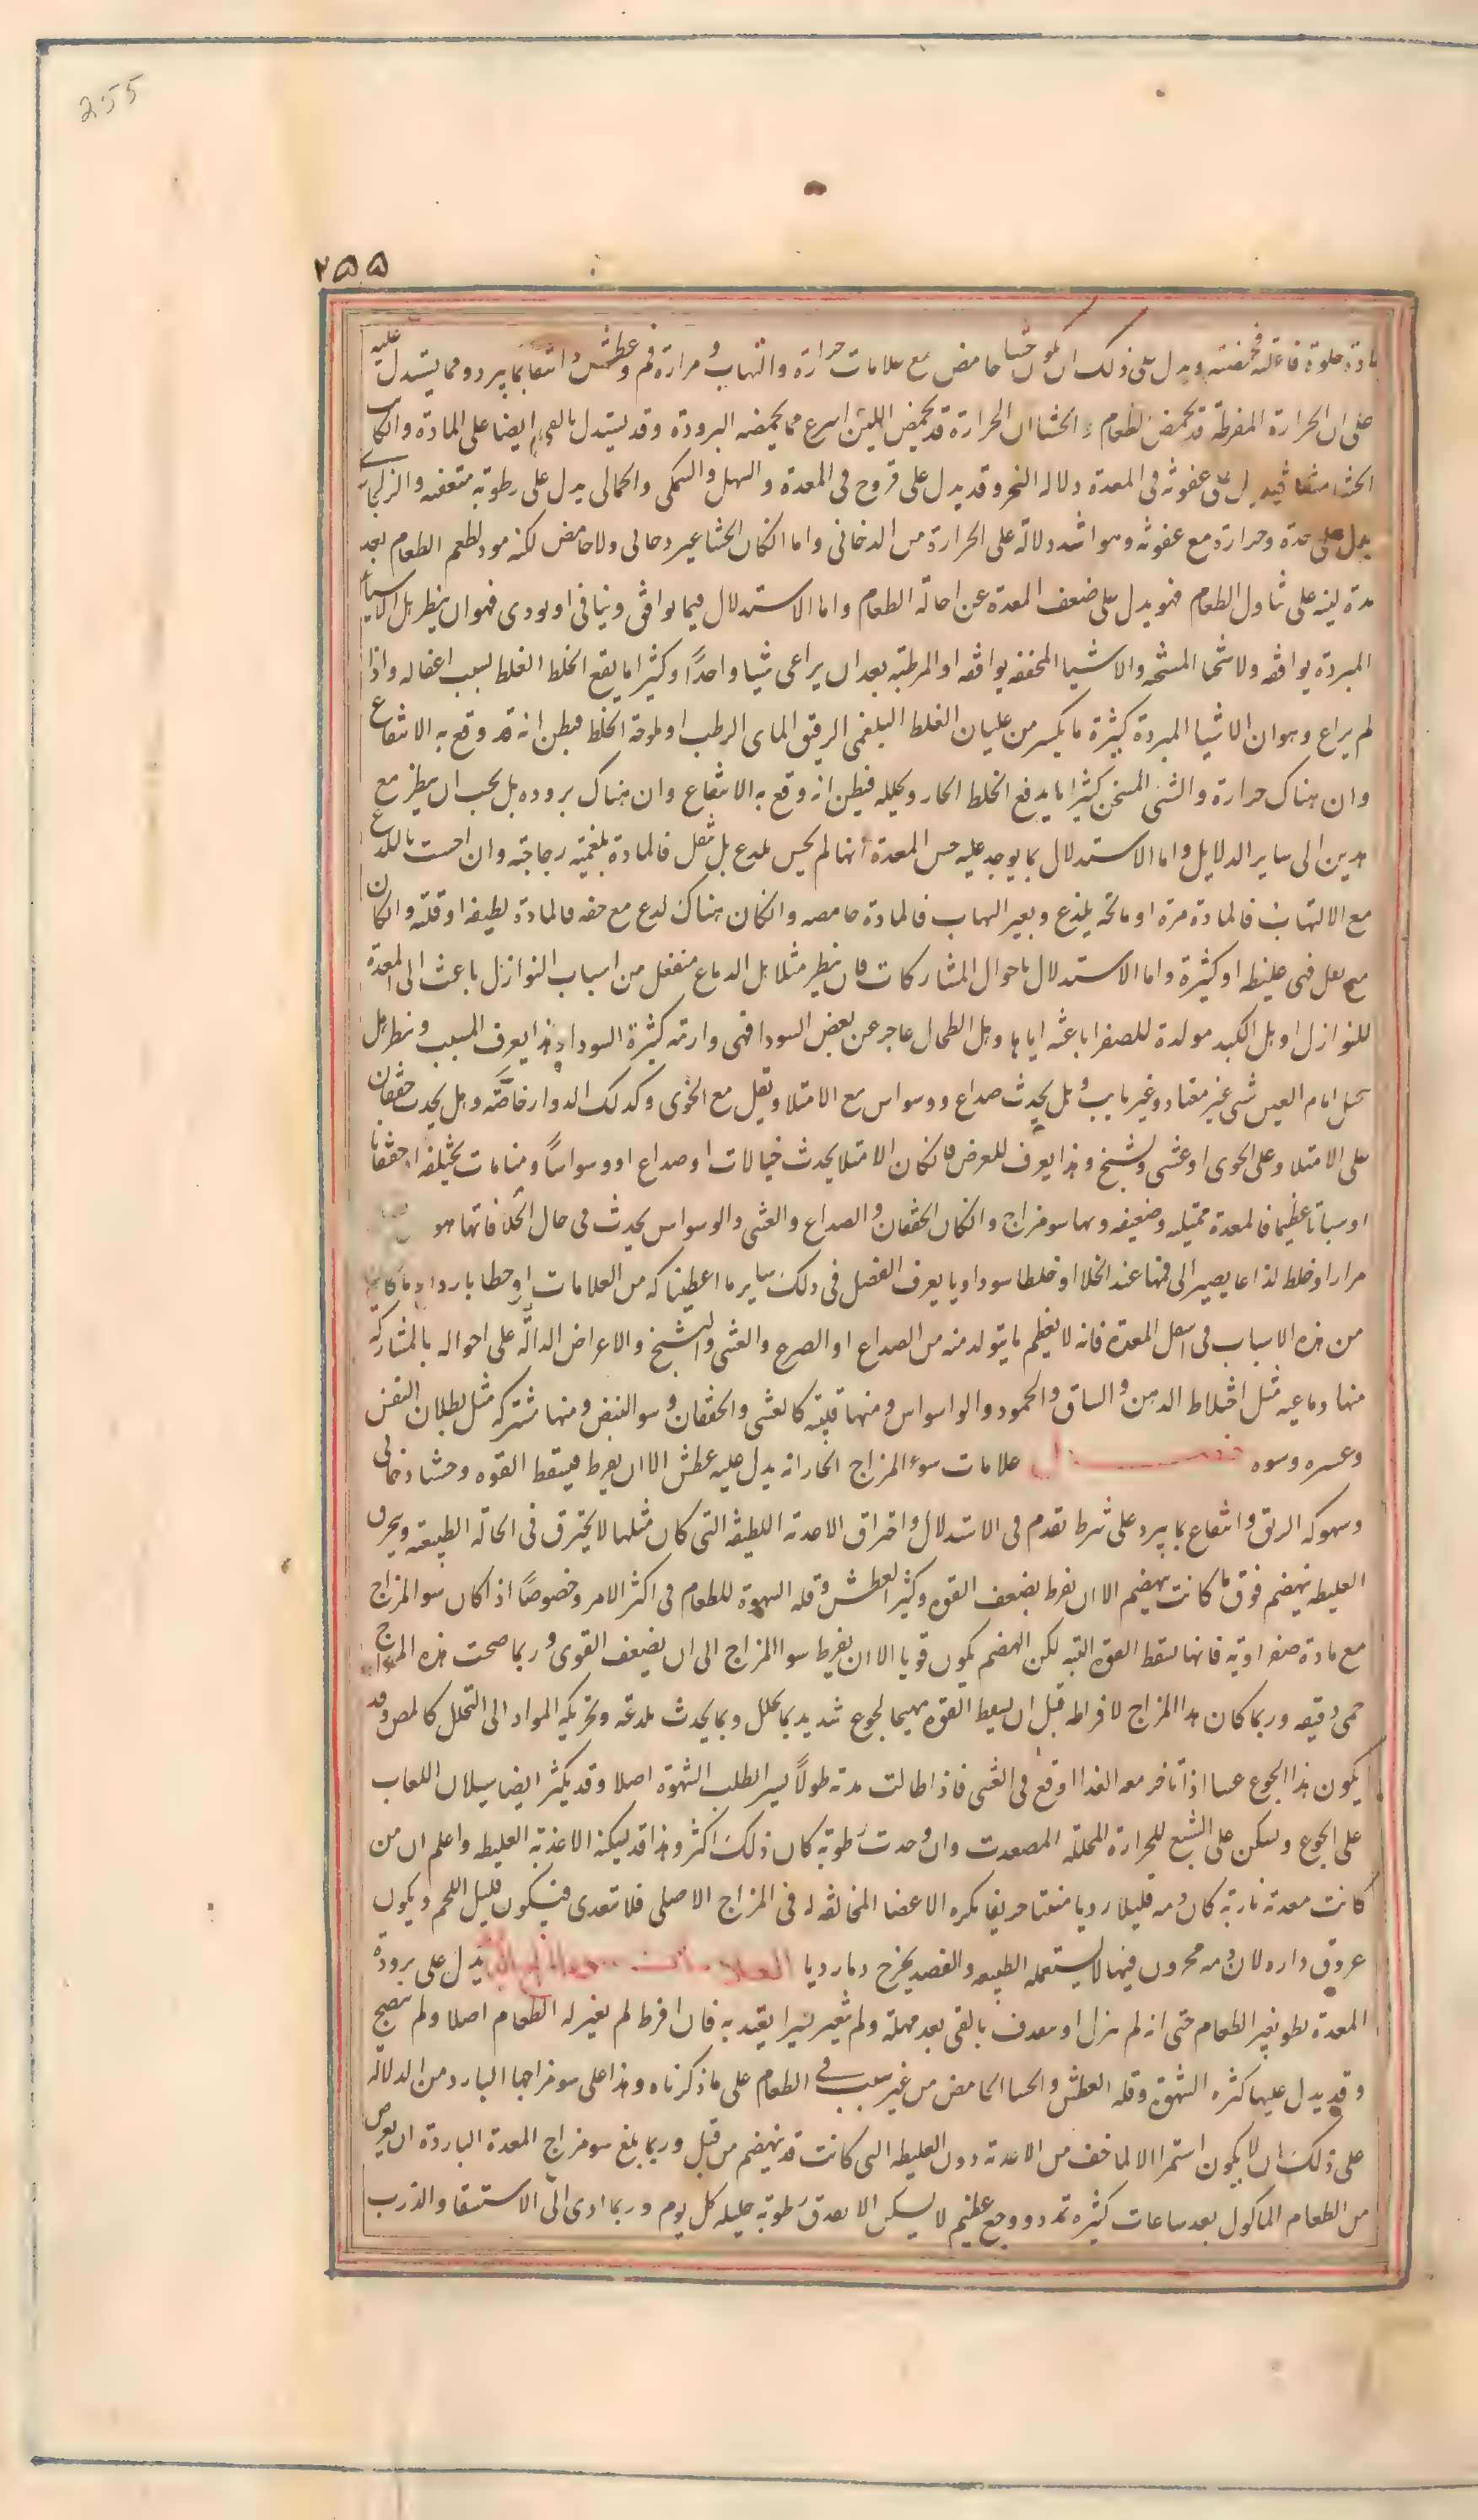 255
٢٥٥
مادة حلوة فاعلة فحمضته ويدل على ذلك ان يكون جشا حامض مع علامات حرارة والتهاب ومرارة فم وعطش وانتفا بما يبرد ومما يستدل عليه
على ان الحرارة المفرطة قد تحمض الطعام والجشا ان الحرارة قد تحمض اللبن اسرع مما يحمضه البرودة وقد يستدل بالقىء ايضا على المادة والكان
الجشا منتنا فيدل على عفونة فى المعدة دلاله البخر وقد يدل على قروح فى المعدة والسهل والسمكى والحمالى يدل على رطوبة متعفنه والزنجارى
يدل على حدة وحرارة مع عفونة وهو اشد دلالة على الحرارة من الدخانى واما انكان الجشا غير دخانى ولا حامض لكنه مود لطعم الطعام بعد
مدة لينه على تناول الطعام فهو يدل على ضعف المعدة عن احالة الطعام واما الاستدلال فيما يوافق وينافى او يودى فهو ان ينظر هل الاشيا
المبردة يوافقه ولا المسخنه والاشيا المجففه يوافقه او المرطبة بعد ان يراعى شيا واحدا وكثيرا ما يقع الخلط الغلط بسبب اغفاله واذا
لم يراع وهو ان الاشيا المبردة كثيرة ما يكسر من غليان الخلط البلغمى الرقيق المائى الرطب او ملوحة الخلط فيظن انه قد وقع به الانتفاع
وان هناك حرارة والشى المسخن كثيرا ما يدفع الخلط الحار ويحلله فيظن انه وقع به الانتفاع وان هناك بروده بل يجب ان ينظر مع
هذين الى ساير الدلايل واما الاستدلال بما يوجد عليه حس المعدة انها لم يحس بلدع بل ثقل فالمادة بلغمية زجاجية وان احست باللدع
مع الالتهاب فالمادة مرة او مالحة يلذع وبغير الهاب فالمادة حامضه وانكان هناك لدع مع خفه فالمادة لطيفه او قلته وانكان
مع ثقل فهى غليظه او كثيرة واما الاستدلال باحوال المشاركات فان ينظر مثلا هل الدماغ منفعل من اسباب النوازل باعث الى المعدة
للنوازل او هل الكبد مولدة للصفرا باعثه اياها وهل الطحال عاجر عن نفض السودا فهى وارمه كثيرة السودا وهذا يعرف السبب وينظر هل
تخيل امام العين شى غير معتاد وغير ثابت وهل يحدث صداع ووسواس مع الامتلا ويقل مع الخوى وكذلك الدوار خاصة وهل يحدث خفقان
على الامتلا وعلى الخوى او غشى وتشنج وهذا يعرف للعرض فانكان الامتلا يحدث خيالات او صداع او وسواسا ومنامات مختلفه او خفقانا
او سباتا عظيما فالمعدة ممتيله وضعيفه وبها سومزاج وانكان الخفقان والصداع والغشى والوسواس يحدث فى حال الخلا فانها هو
مرارا او خلط لذاعا يصير الى فمها عند الخلا او خلطا سوداويا يعرف الفصل فى ذلك ساير ما اعطيناكه من العلامات او خلطا باردا وما كان
من هذه الاسباب فى اسفل المعدة فانه لا يعظم ما يتولد منه من الصداع او الصرع والغشى والتشنج والاعراض الدالة على احواله بالمشاركه
منها دماغيه مثل اختلاط الدهن والسبات والجمود والوسواس ومنها قلبية كالغشى والخفقان وسو النبض ومنها مشتركه مثل بطلان النفس
وعسره وسوه فصل علامات سوء المزاج الحار انه يدل عليه عطش الا ان يفرط فيسقط القوه وجشا دخانى
وسهوكه الريق وانتفاع بما يبرد على شرط تقدم فى الاستدلال واحتراق الاغدية اللطيفة التى كان مثلها لا يحترق فى الحالة الطبيعة ويحرق
الغليظه ينهضم فوق ما كانت ينهضم الا ان يفرط فيضعف القوه وكثير العطش وقله الشهوة للطعام فى اكثر الامر وخصوصا اذا كان سو المزاج
مع مادة صفراوية فانها تسقط القوة البته لكن الهضم يكون قويا الا ان يفرط سو المزاج الى ان يضعف القوى وربما صحبت هذه المزاج
حمى دقيقه وربما كان هذا المزاج لافراطه قبل ان يسقط القوه مهيجا لجوع شديد بما يحلل وبما يحدث بلدغه وتحريكه المواد الى التحلل كالمص وقد
يكون هذا الجوع غشيا اذا تاخر معه الغدا اوقع فى الغشى فاذا طالت مدته طولا يسيرا بطلت الشهوة اصلا وقد يكثر ايضا سيلان اللعاب
على الجوع ويسكن على الشبع للحرارة المحللة المصعدت وان وجدت رطوبة كان ذلك اكثر وهذا قد يسكنه الاغذية الغليظه واعلم ان من
كانت معدته نارية كان دمه قليلا رديا منتنا حريفا يكره الاعضا المخالفه له فى المزاج الاصلى فلا تتغدى فيكون قليل اللحم ويكون
عروق داره لان دمه مخزون فيها لا يستعمله الطبيعه والفصد يخرج دما رديا يدل على برودة
المعدة بطو تغير الطعام حتى انه لم ينزل او يقذف بالقى بعد مهلة ولم يتغير تغيرا يعتد به فان افرط لم يغير له الطعام اصلا ولم ينضج
وقد يدل عليها كثره الشهوة وقله العطش والجشا الحامض من غير سبب فى الطعام على ما ذكرناه وهذا على سومزاجها البارد من الدلاله
على ذلك ان لا يكون استمرا الا لما خف من الاغدية دون الغليظه التى كانت قد ينهضم من قبل وربما بلغ سومزاج المعدة الباردة ان يعرض
من الطعام الماكول بعد ساعات كثيره تمدد ووجع عظيم لا يسكن الا بقذف رطوبة جليله كل يوم وربما ادى الى الاستسقا والذرب